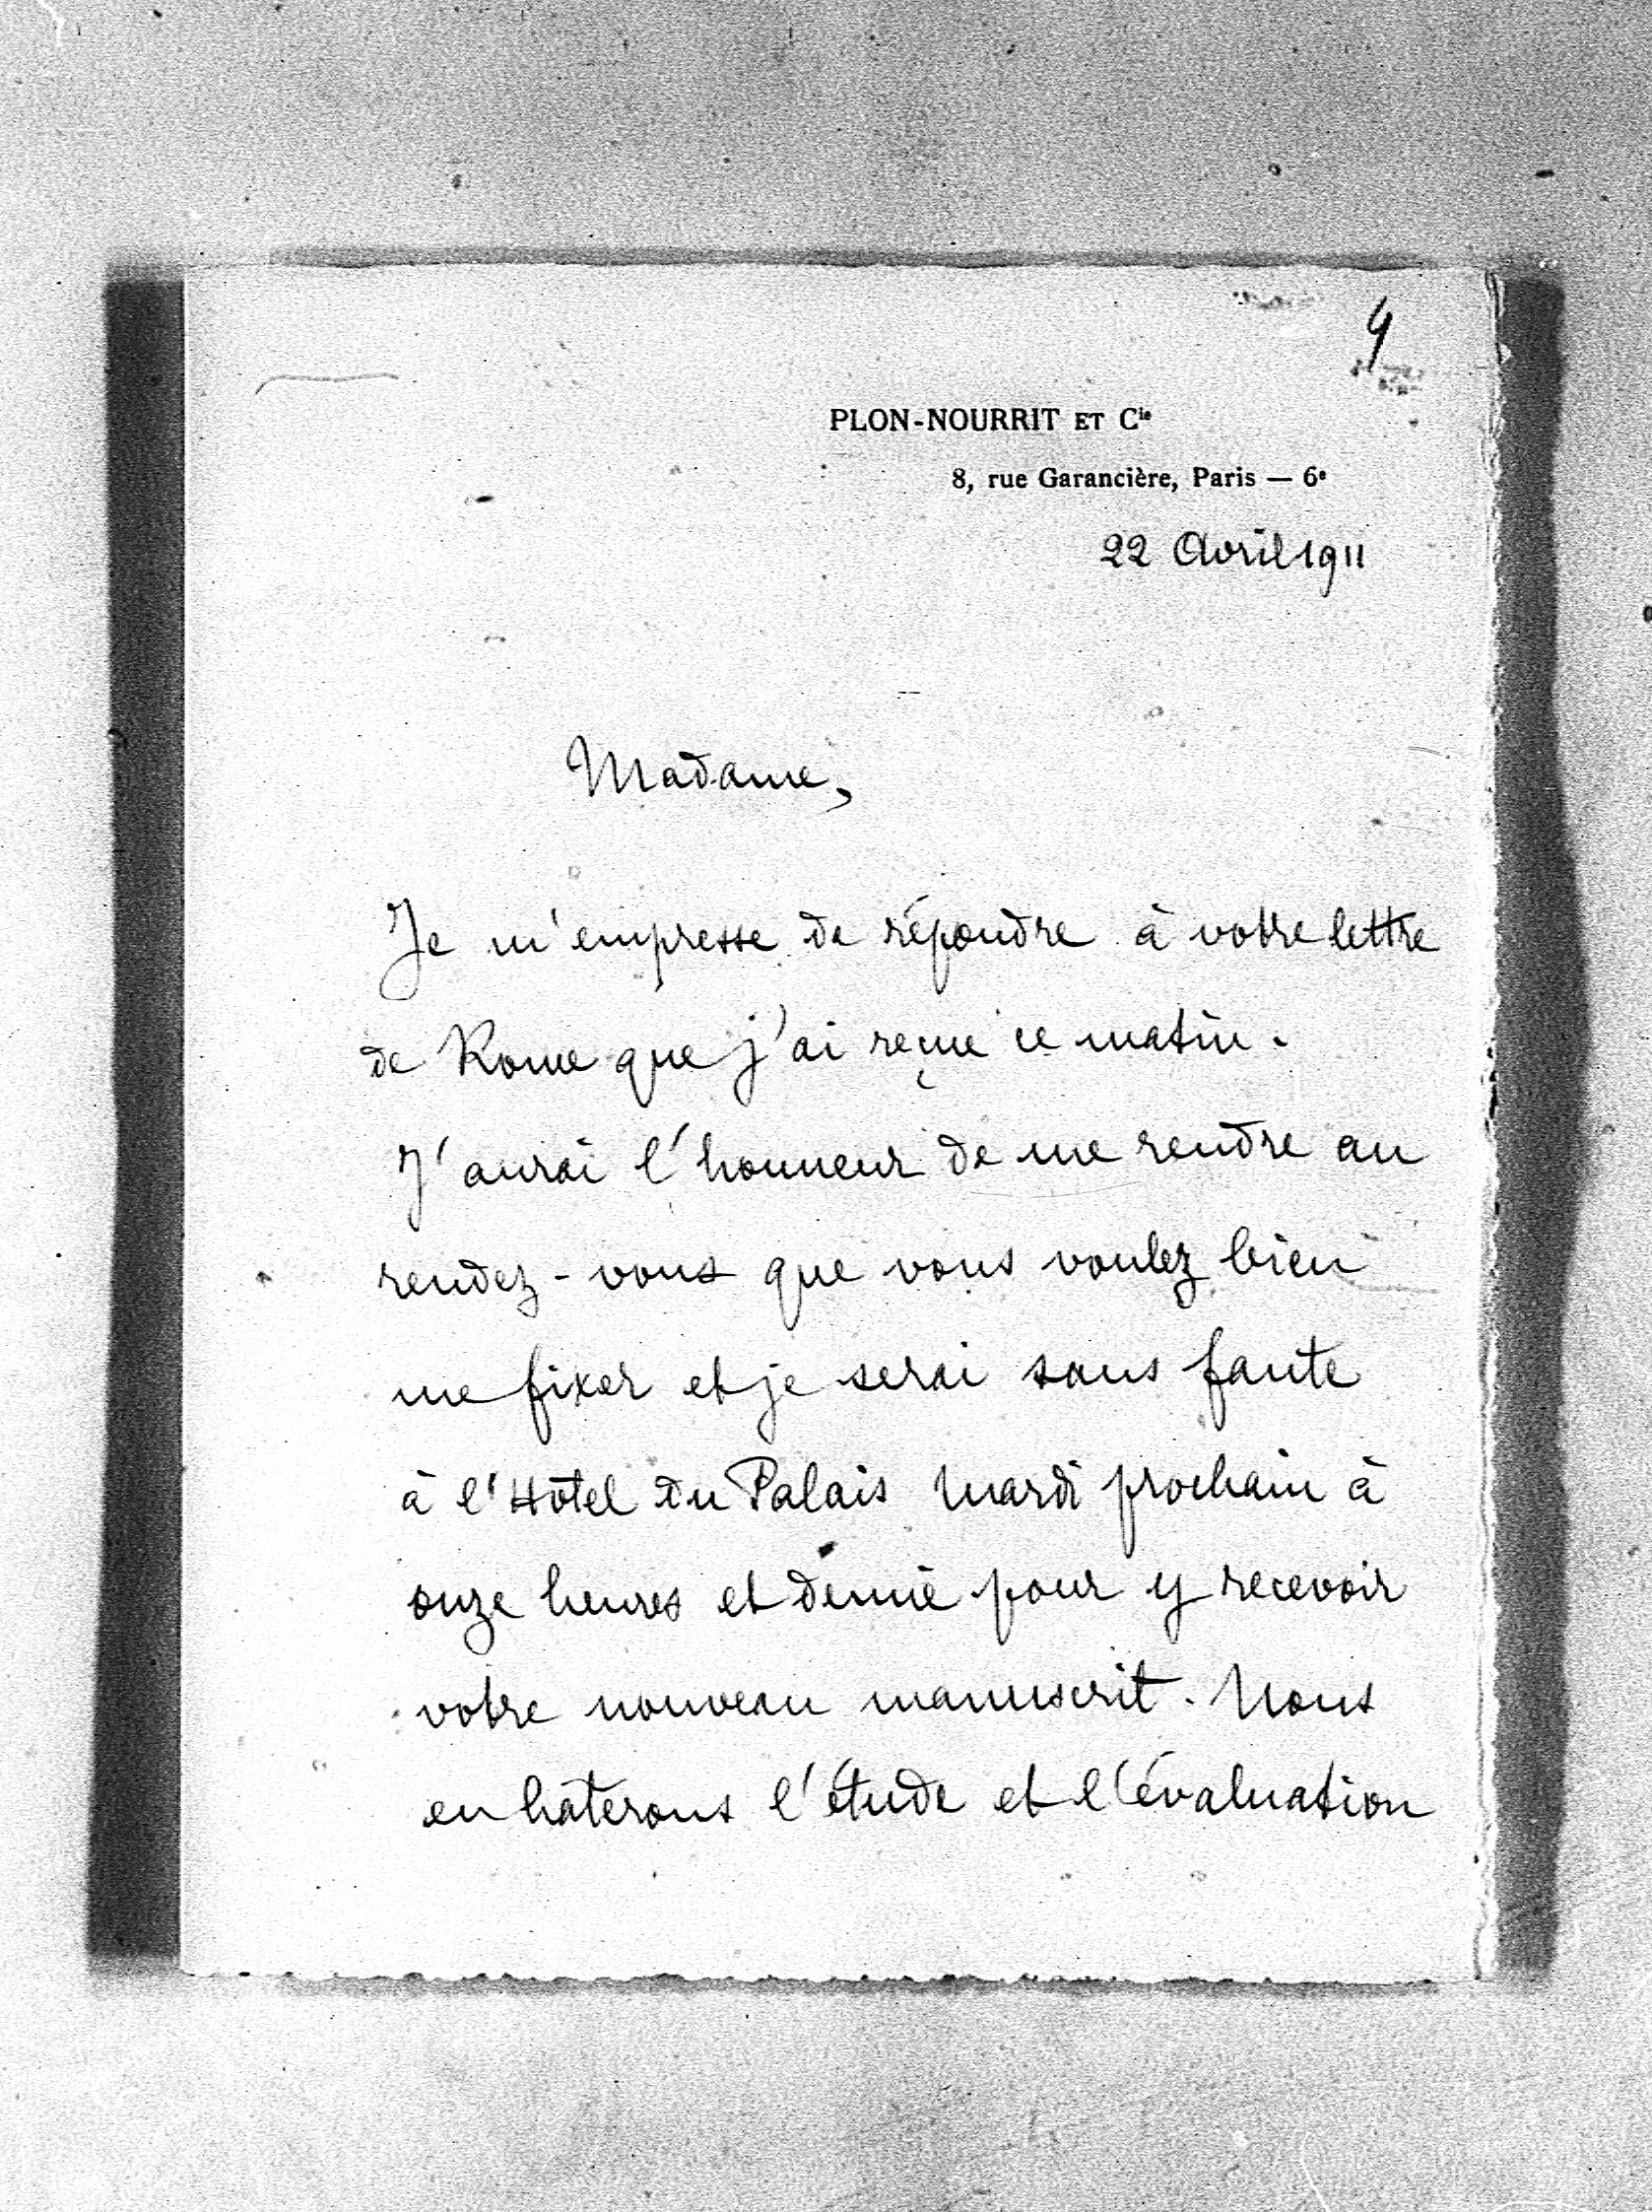 4
PLON-NOURRIT ET Cie
8, rue Garancière, Paris — 6e
22 Avril 1911
Madame,
Je m'empresse de répondre à votre lettre
de Rome que j'ai reçue ce matin.
J'aurai l'honneur de me rendre au
rendez-vous que vous voulez bien
me fixer et je serai sans faute
à l'Hôtel du Palais Mardi prochain à
onze heures et demie pour y recevoir
votre nouveau manuscrit. Nous
en hâterons l'étude et l'évaluation